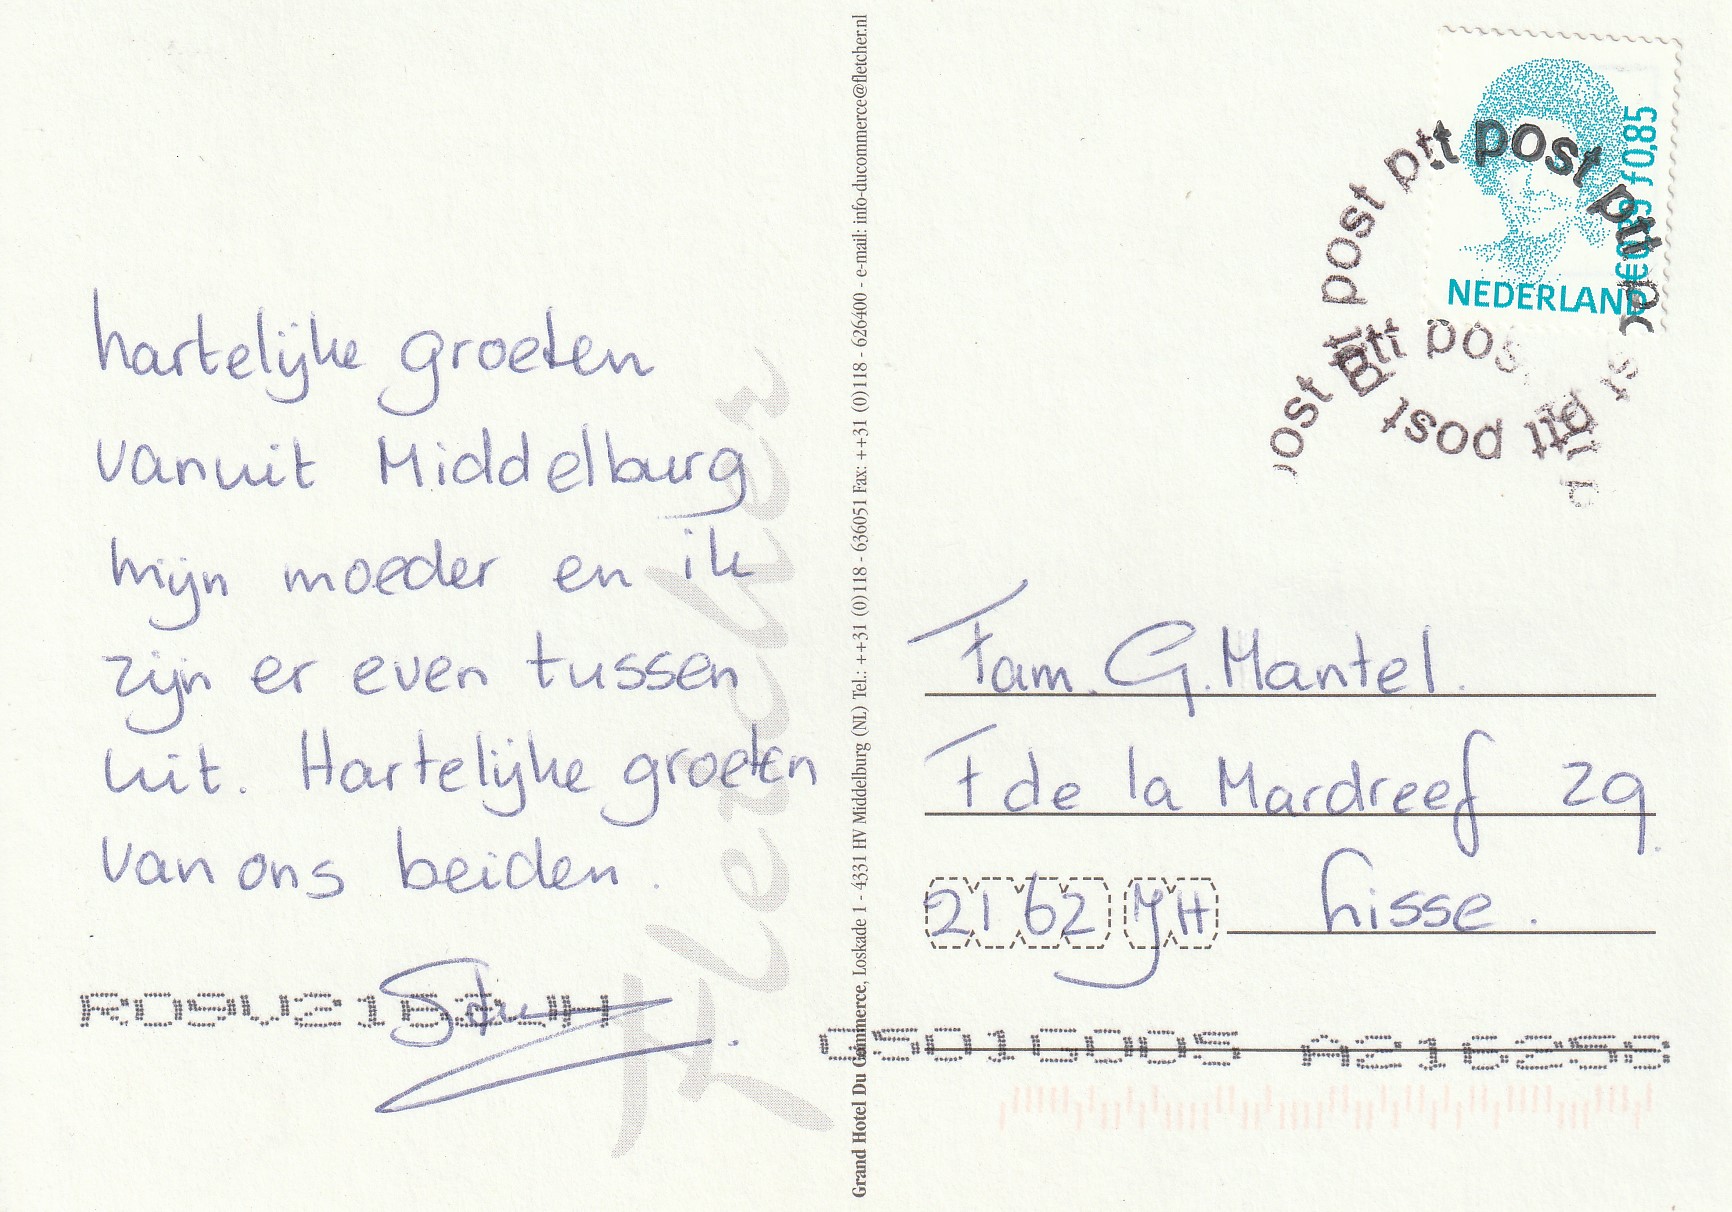 hartelijke groeten
vanuit Middelburg
mijn moeder en ik
zijn er even tussen
uit. Hartelijke groeten
van ons beiden.
Fletcher
Grand Hotel Du Commerce, Loskade 1 - 4331 HV Middelburg (NL) Tel.: ++31 (0)118 - 636051 Fax: ++31 (0)118 - 626400 - e-mail: info-ducommerce@fletcher.nl
NEDERLAND
€0,39 f0,85
ptt post ptt post ptt post
ptt post ptt post
Fam. G. Mantel.
F de la Mardreef 29.
2162 JH Lisse.
A216256